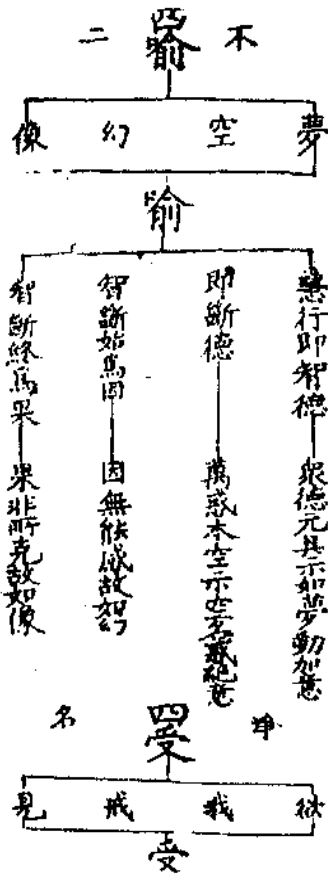 不 四喻 二
夢 空 幻 像
喻
慧行即智德 眾德元具示如夢動加意
即斷德 萬惑本空示空名絕意
智斷始為因 因無能感故如幻
智斷終為果 果非所克故如像
四受 名
欲 我 戒 見
受